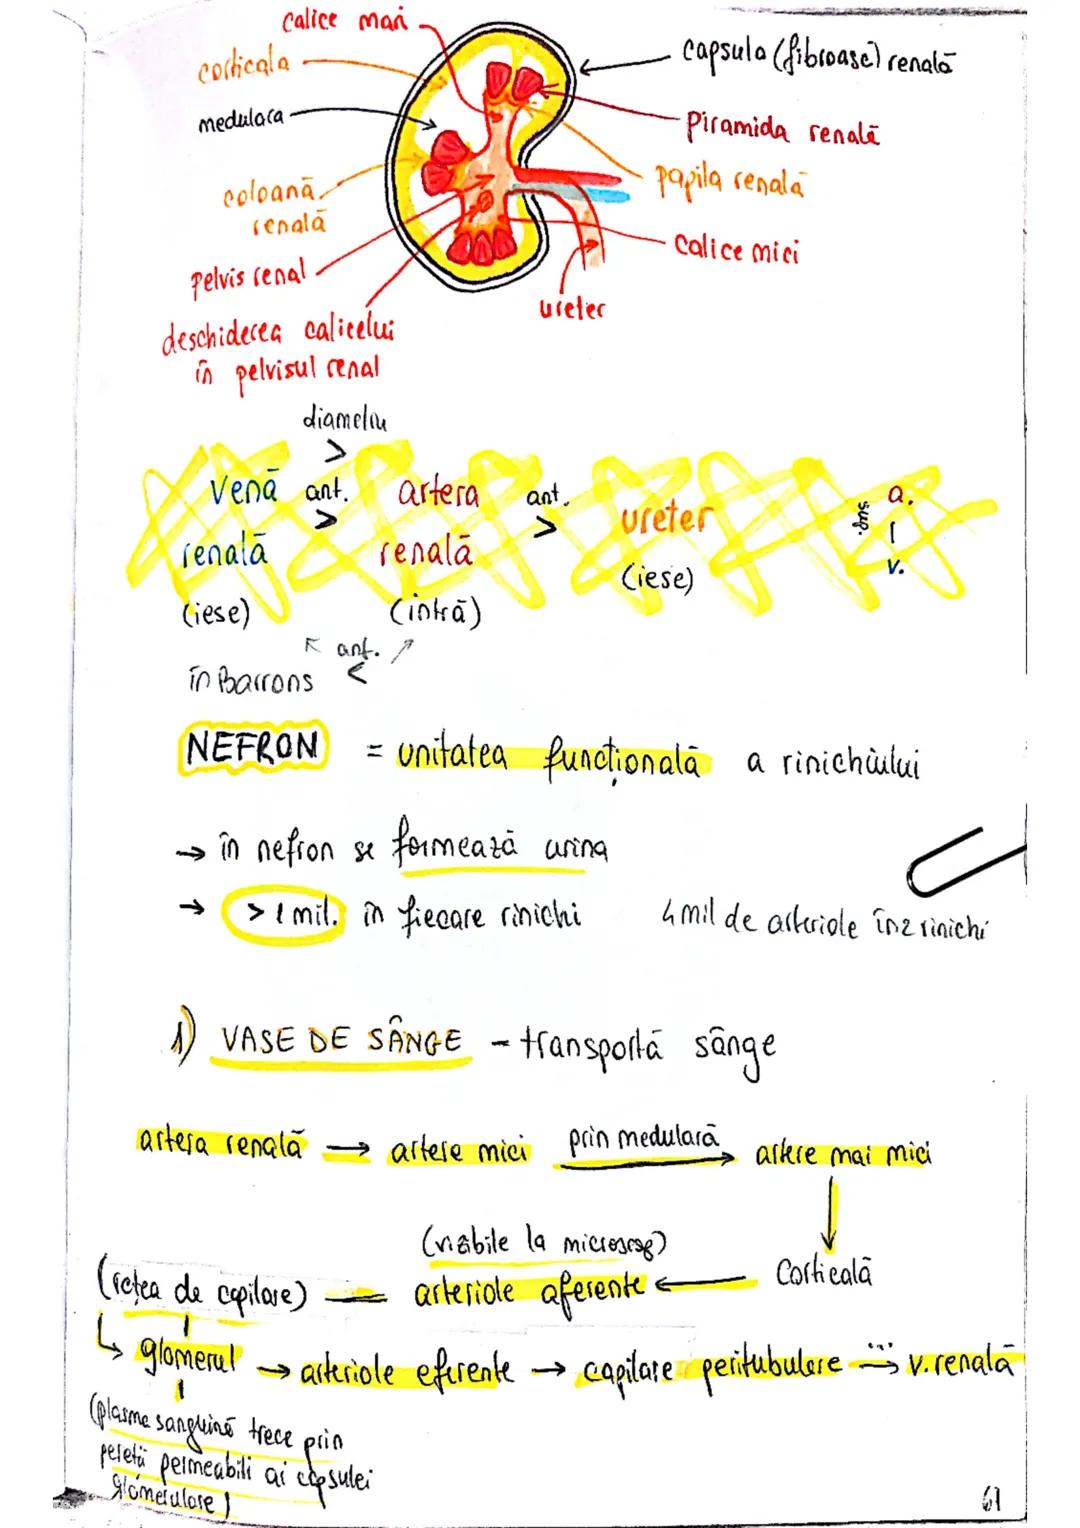 calice mari
corticala
capsula (fibroasă) renală
medulara
piramida renală
papila renală
coloană
renală
calice mici
pelvis renal
ureter
deschiderea calicelui
în pelvisul renal
diametru
>
venă ant. artera ant. ureter sup. a.
> > |
renală renală v.
(iese) (intră) (iese)
ant.
în Barrons <
NEFRON = unitatea funcțională a rinichiului
→ în nefron se formează urina
→ >1 mil. în fiecare rinichi 4 mil de arteriole în 2 rinichi
1) VASE DE SÂNGE - transportă sânge
artera renală → artere mici prin medulară → artere mai mici
↓
(vizibile la microscop) Corticală
(rețea de capilare) — arteriole aferente ←
↳ glomerul → arteriole eferente → capilare peritubulare ...→ v. renală
(plasma sanguină trece prin
pereții permeabili ai capsulei
glomerulare)
61